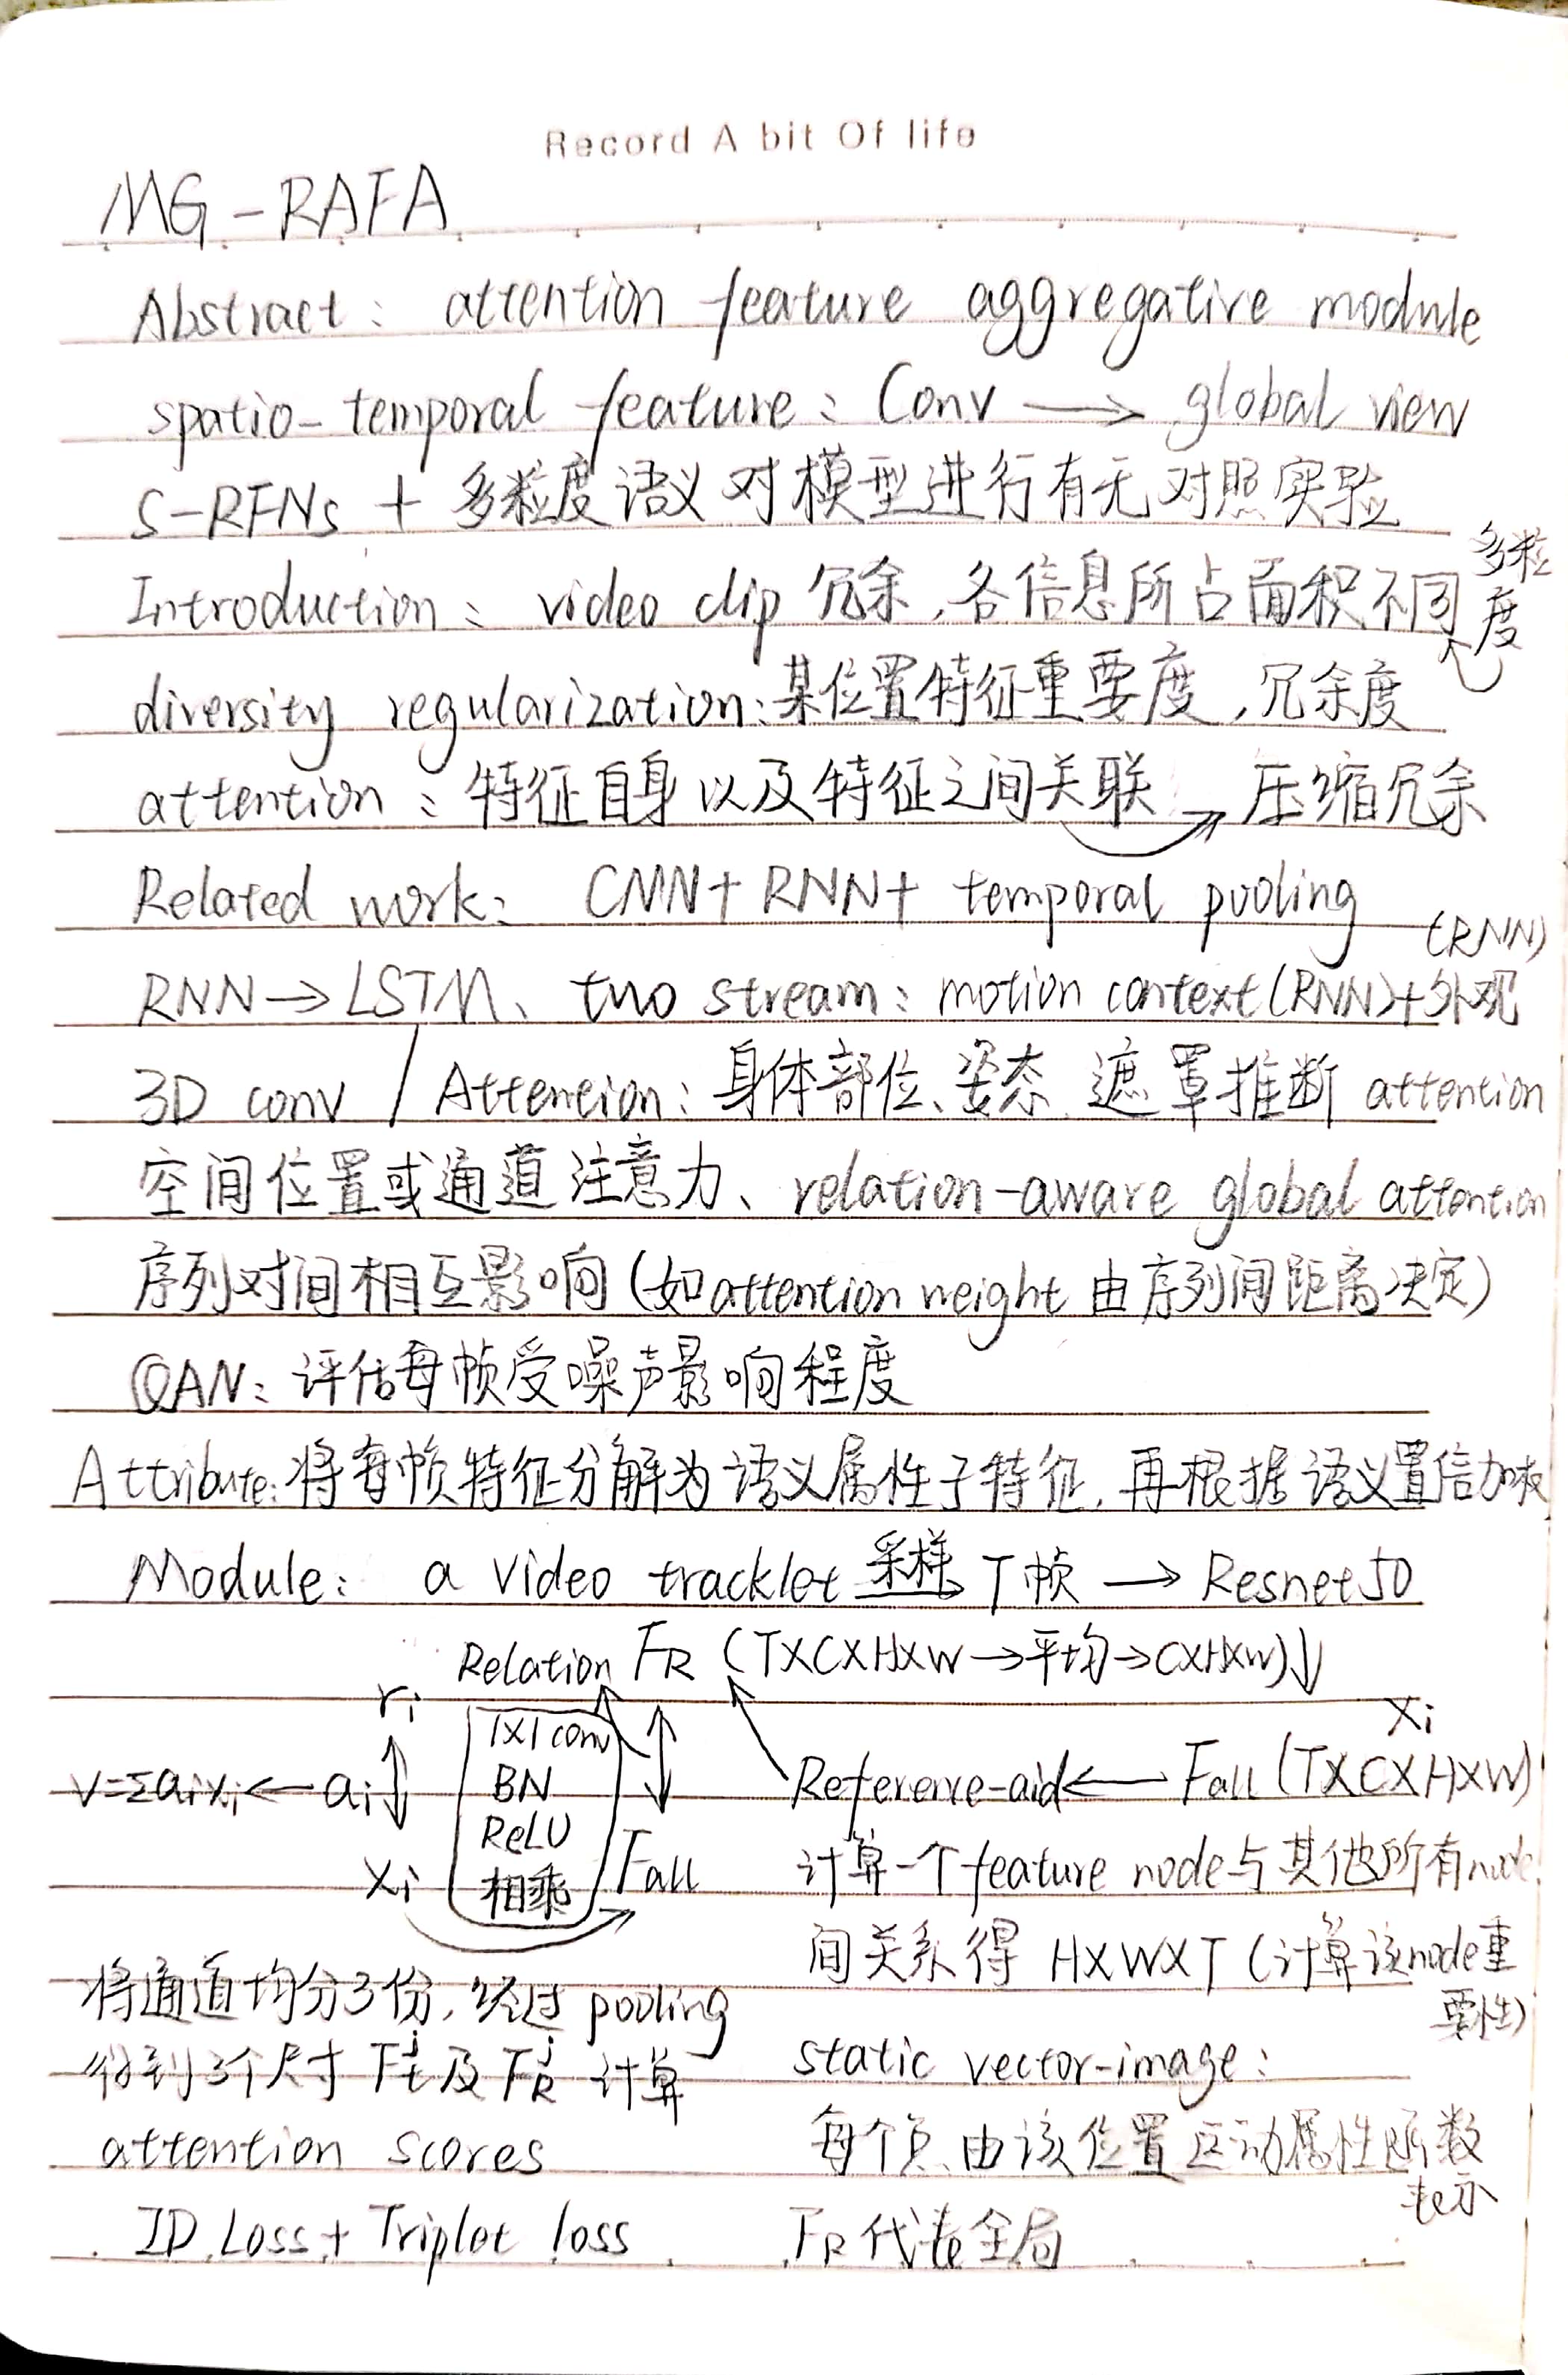 Record A bit Of life
MG-RAFA
Abstract: attention feature aggregative module
spatio-temporal feature: Conv → global view
S-RFNs + 多粒度语义 对模型进行有无对照实验
多粒度
Introduction: video clip 冗余,各信息所占面积不同
diversity regularization:某位置特征重要度,冗余度
attention:特征自身以及特征之间关联 → 压缩冗余
Related work: CNN+RNN+ temporal pooling
(RNN)
RNN→LSTM、two stream: motion context(RNN)+外观
3D conv / Attention:身体部位、姿态、遮罩推断 attention
空间位置或通道注意力、relation-aware global attention
序列对间相互影响(如attention weight 由序列间距离决定)
QAN:评估每帧受噪声影响程度
Attribute:将每帧特征分解为语义属性子特征,再根据语义置信加权
Module: a video tracklet 采样→ T帧 → Resnet50
Relation FR (TXCXHXW→平均→CXHXW)↓
ri
1X1 conv
Xi
V=Σaixi ← ai
BN
Reference-aid ← Fall (TXCXHXW)
ReLU
Xi
相乘
Fall
计算一个feature node与其他所有node
间关系得 HXWXT (计算该node重
要性)
将通道均分3份,经过 pooling
得到3个尺寸 Ft^j及FR^j 计算
attention scores
ID Loss + Triplet loss
static vector-image:
每个点由该位置运动属性函数
表示
FR代表全局